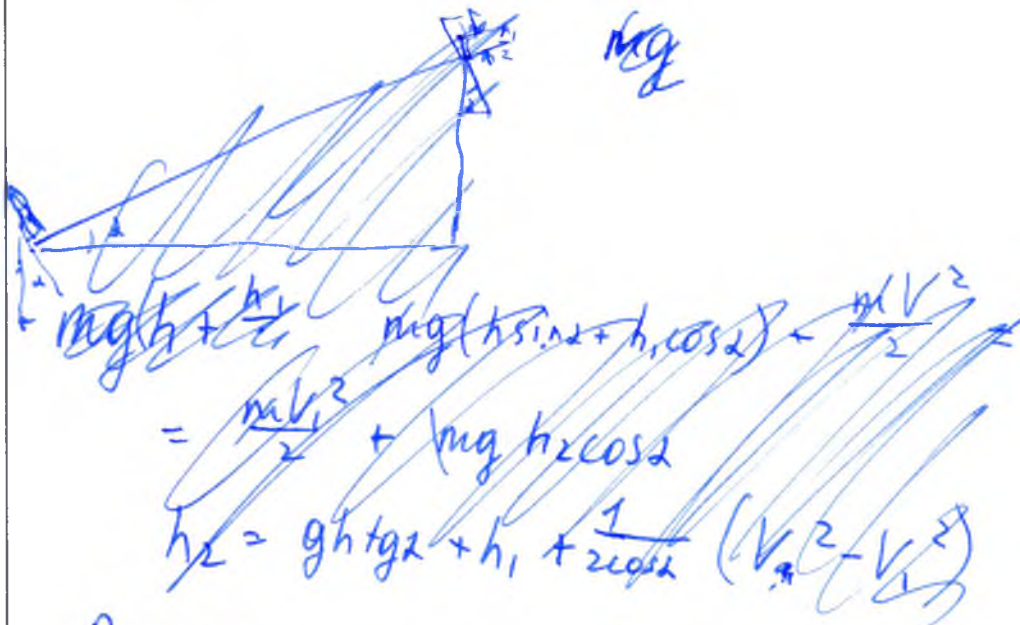 mg
mg(h + h₁/2    mg(h sinα + h₁ cosα) + mV²/2 =
= mV₁²/2 + mg h₂ cosα
h₂ = gh tgα + h₁ + 1/(2cosα) (V² - V₁²)